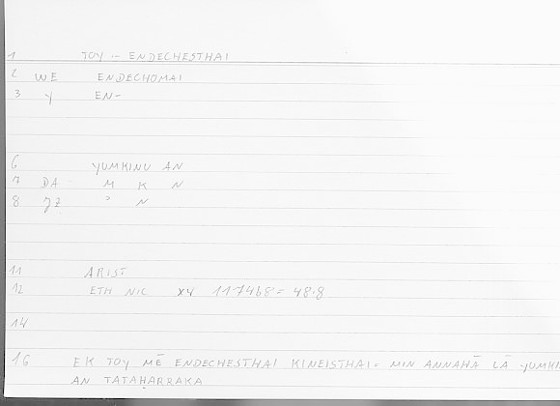 1 TOY -- ENDECHESTHAI
2 WE ENDECHOMAI
3 Y EN-
6 YUMKINU AN
7 DA M K N
8 JZ ' N
11 ARIST
12 ETH NIC X4 1174b8 = 48.8
14
16 EK TOY MĒ ENDECHESTHAI KINEISTHAI. MIN ANNAHĀ LĀ YUMKI
AN TATAḤARRAKA